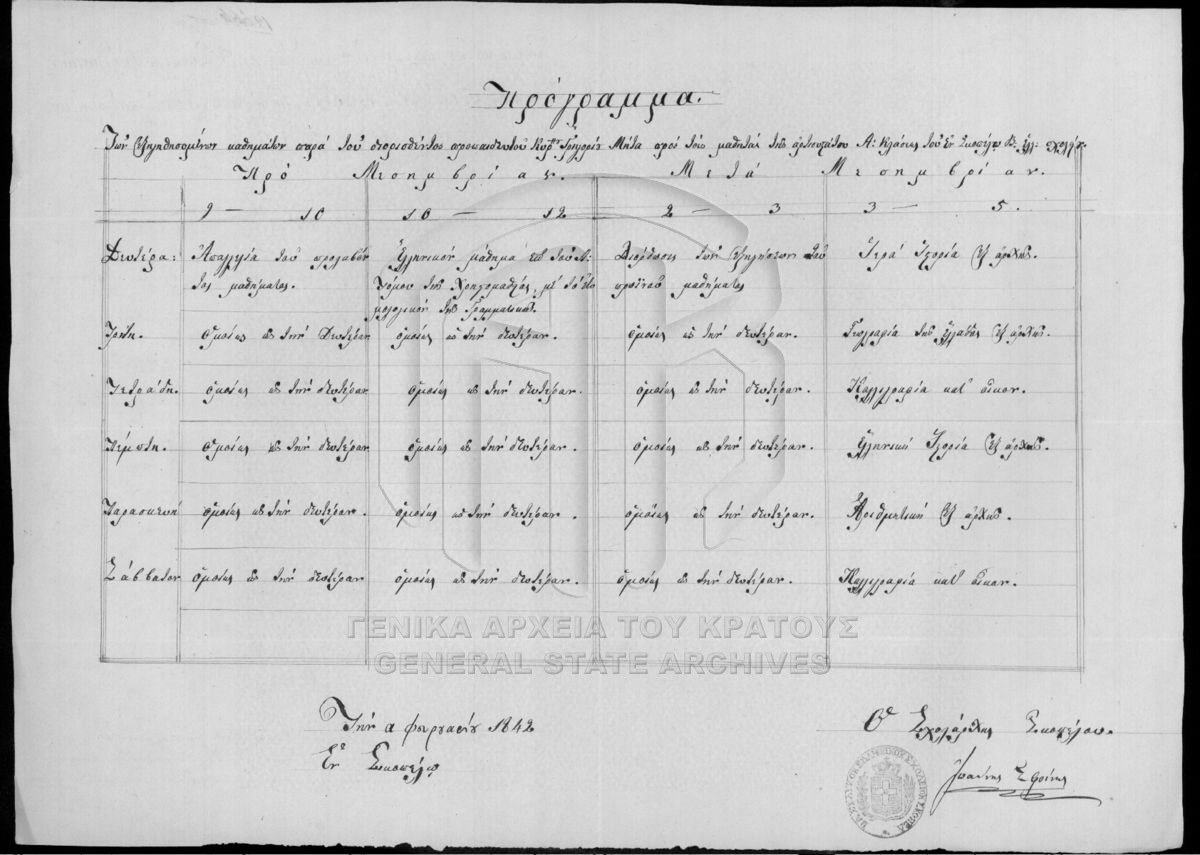 Πρόγραμμα.
Τῶν ἐξηγηθησομένων μαθημάτων παρὰ τοῦ διορισθέντος πρωτοδιδακτοῦ Κυρ: Γρηγορίου πρὸς τοὺς μαθητὰς τῆς Α: Κλάσεως τοῦ ἐν Σκοπέλῳ Ἑλλ: σχολείου.
Πρὸ Μεσημβρίας. Μετὰ Μεσημβρίαν.
9 — 10 10 — 12 2 — 3 3 — 5.
Δευτέρα: Ἀπαγγελία τοῦ προλαβόντος μαθήματος. Ἑλληνικὸν μάθημα ἐκ τοῦ Α: τόμου τῆς Χρηστομαθείας, μὲ τὸ τεχνολογικὸν τῆς Γραμματικῆς. Διόρθωσις τῶν ἐξηγήσεων τοῦ πρωϊνοῦ μαθήματος Ἱερὰ Ἱστορία ἐξ ἀρχῆς.
Τρίτη. Ὁμοίως ὡς τὴν Δευτέραν ὁμοίως ὡς τὴν δευτέραν. ὁμοίως ὡς τὴν δευτέραν. Γεωγραφία τῆς Ἑλλάδος ἐξ ἀρχῆς.
Τετράδη. ὁμοίως ὡς τὴν δευτέραν ὁμοίως ὡς τὴν δευτέραν. ὁμοίως ὡς τὴν δευτέραν. Καλλιγραφία κατ' εἰκον.
Πέμπτη. ὁμοίως ὡς τὴν δευτέραν ὁμοίως ὡς τὴν δευτέραν. ὁμοίως ὡς τὴν δευτέραν. Ἑλληνικὴ Ἱστορία ἐξ ἀρχῆς.
Παρασκευὴ ὁμοίως ὡς τὴν δευτέραν. ὁμοίως ὡς τὴν δευτέραν. ὁμοίως ὡς τὴν δευτέραν. Ἀριθμητικὴ ἐξ ἀρχῆς.
Σάββατον ὁμοίως ὡς τὴν δευτέραν ὁμοίως ὡς τὴν δευτέραν. ὁμοίως ὡς τὴν δευτέραν. Καλλιγραφία κατ' εἰκον.
ΓΕΝΙΚΑ ΑΡΧΕΙΑ ΤΟΥ ΚΡΑΤΟΥΣ
GENERAL STATE ARCHIVES
Τὴν α φευρουαρίου 1842
Ἐν Σκοπέλῳ
Ὁ Σχολάρχης Σκοπέλου.
Ἰωάννης